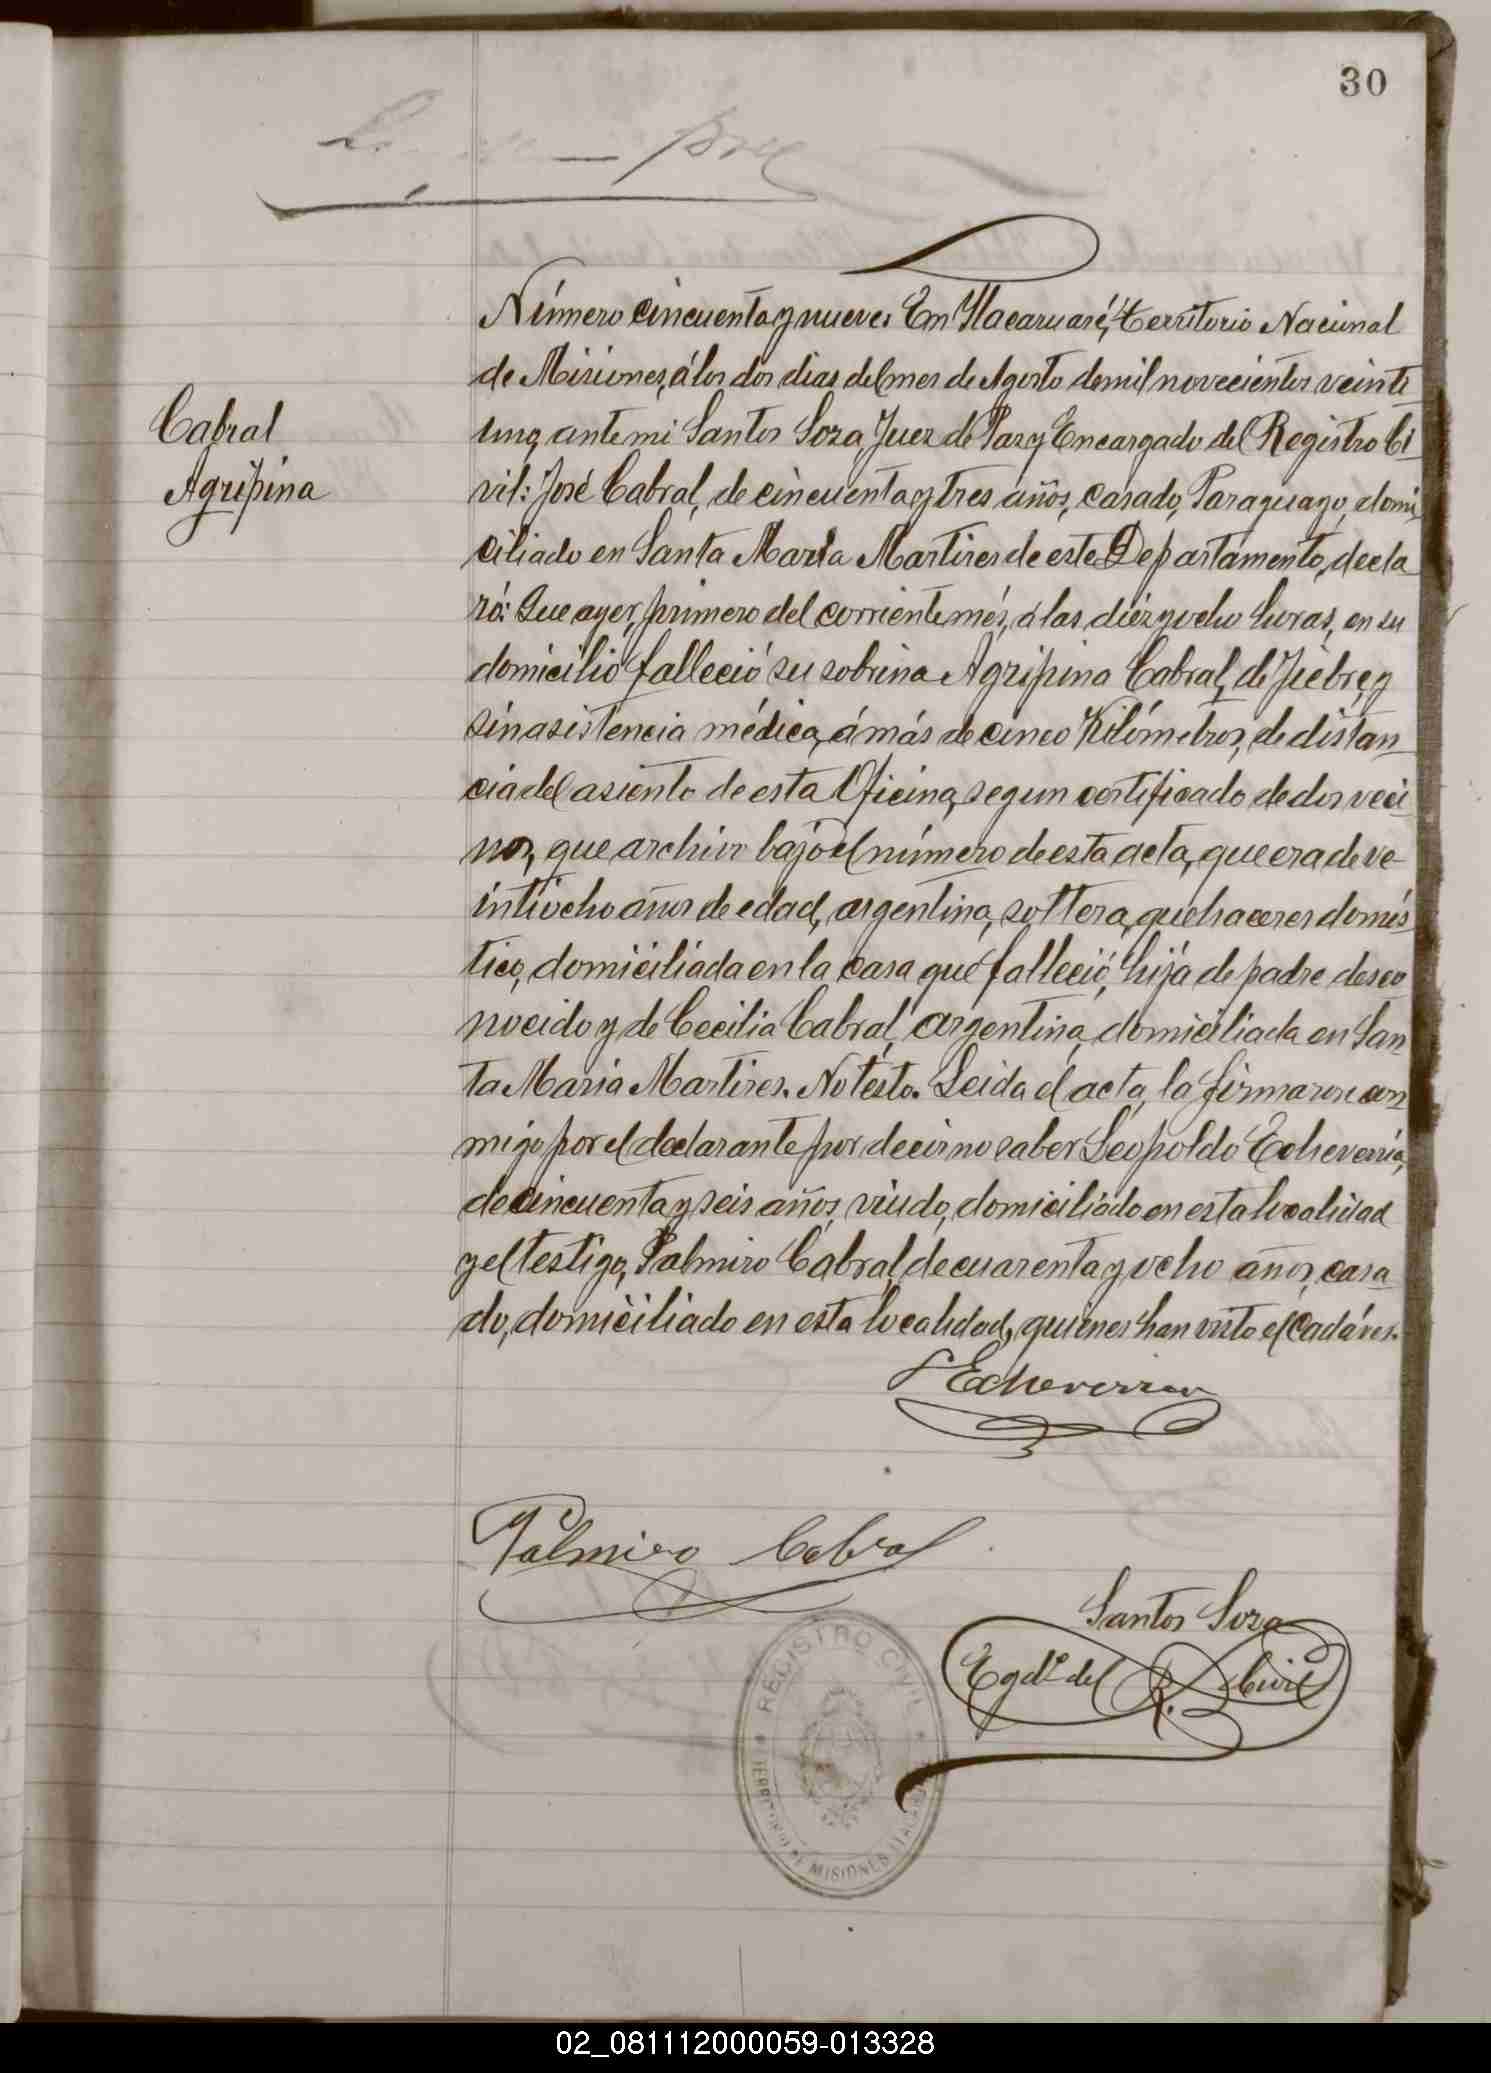 30
Número cincuenta y nueve. En Ytacaruaré, Territorio Nacional
de Misiones, á los dos dias del mes de Agosto de mil novecientos veinte
uno, ante mi Santos Soza, Juez de Paz y Encargado del Registro Ci
vil: José Cabral, de cincuenta y tres años, casado, Paraguayo, domi
ciliado en Santa María Martires de este Departamento, decla
ró: Que ayer, primero del corriente més, á las diez y ocho horas, en su
domicilio falleció su sobrina Agripina Cabral, de fiebre, y
sin asistencia médica, á más de cinco Kilómetros, de distan
cia del asiento de esta Oficina, segun certificado de dos veci
nos, que archivo bajo el número de esta acta, que era de ve
intiocho años de edad, argentina, soltera, quehaceres domés
tico, domiciliada en la casa que falleció, hija de padre desco
nocido y de Cecilia Cabral, argentina, domiciliada en San
ta Maria Martires. No testó. Leida el acta, la firmaron con
migo por el declarante por decir no saber Leopoldo Echeverria,
de cincuenta y seis años, viudo, domiciliado en esta localidad
y el testigo, Palmiro Cabral, de cuarenta y ocho años, casa
do, domiciliado en esta localidad, quienes han visto el cadáver.
Cabral
Agripina
L Echeverria
Palmiro Cabral
Santos Soza
Egdo. del R. Civil
REGISTRO CIVIL
TERRITORIO DE MISIONES
02_081112000059-013328